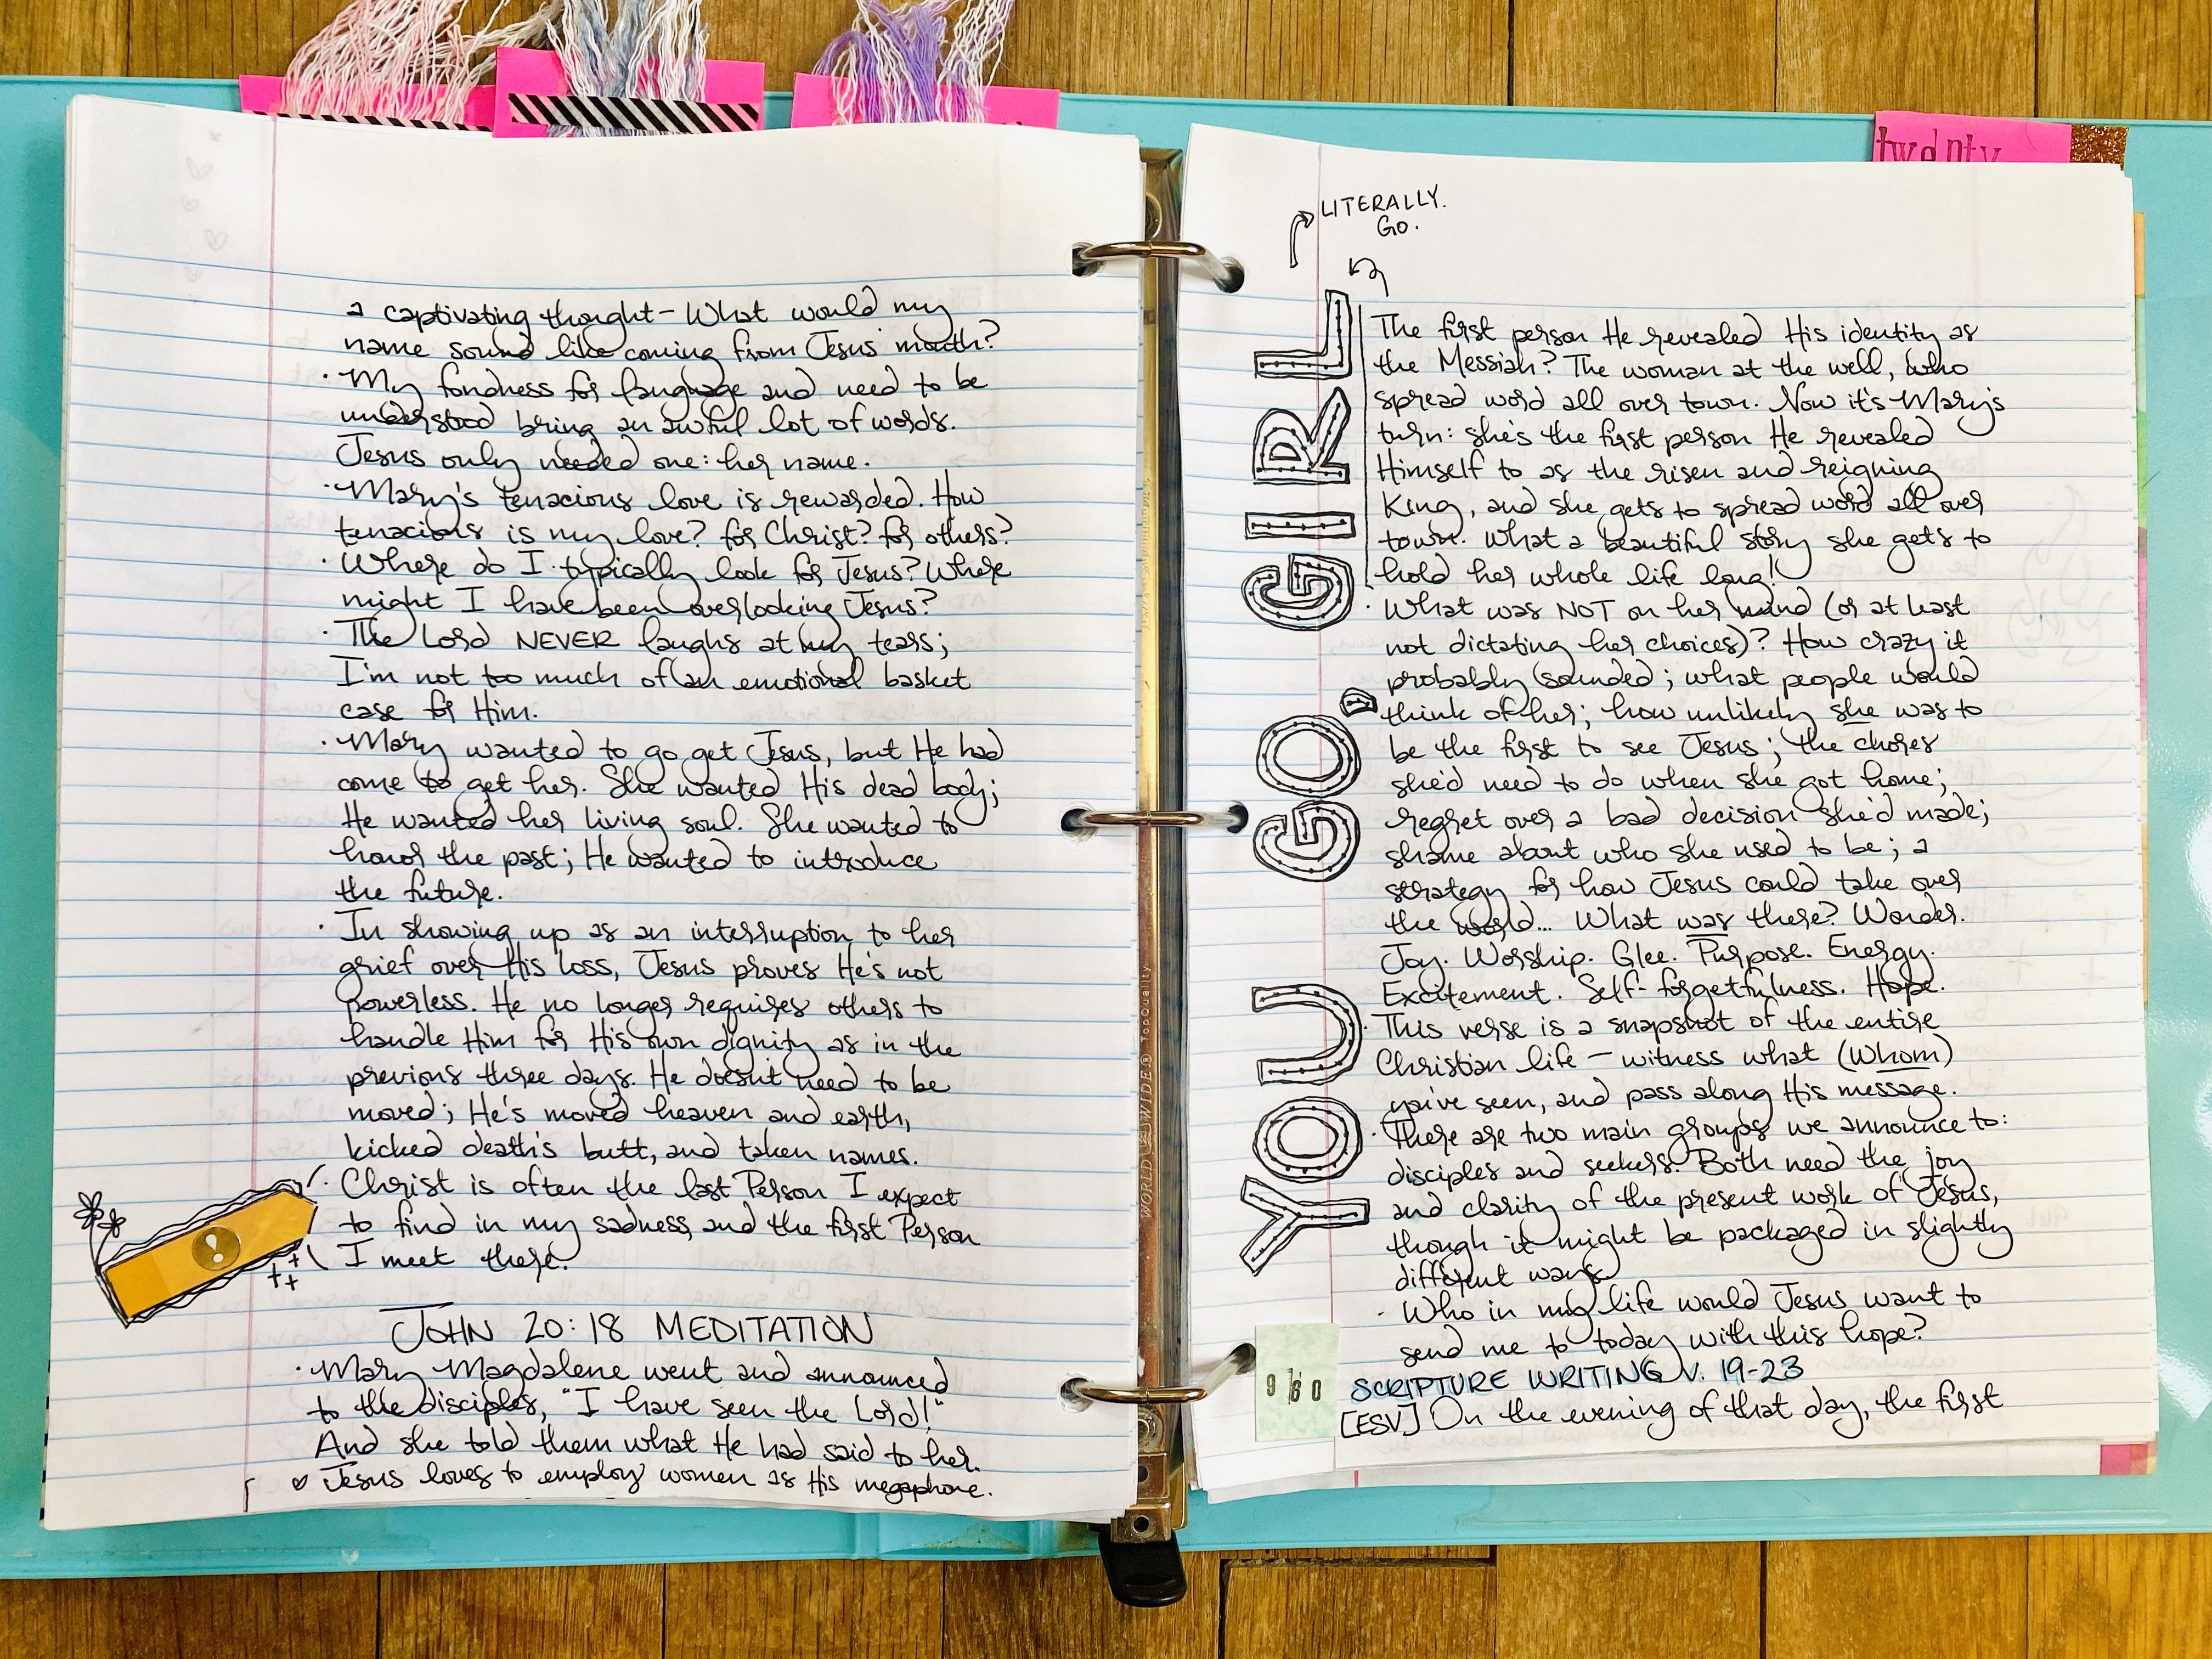 a captivating thought- What would my
name sound like coming from Jesus' mouth?
· My fondness for language and need to be
understood bring an awful lot of words.
Jesus only needed one: her name.
· Mary's tenacious love is rewarded. How
tenacious is my love? for Christ? for others?
· Where do I typically look for Jesus? Where
might I have been overlooking Jesus?
· The Lord NEVER laughs at my tears;
I'm not too much of an emotional basket
case for Him.
· Mary wanted to go get Jesus, but He had
come to get her. She wanted His dead body;
He wanted her living soul. She wanted to
honor the past; He wanted to introduce
the future.
· In showing up as an interruption to her
grief over His loss, Jesus proves He's not
powerless. He no longer requires others to
handle Him for His own dignity as in the
previous three days. He doesn't need to be
moved; He's moved heaven and earth,
kicked death's butt, and taken names.
· Christ is often the last Person I expect
to find in my sadness and the first Person
I meet there.
!
JOHN 20:18 MEDITATION
· Mary Magdalene went and announced
to the disciples, "I have seen the Lord!"
And she told them what He had said to her.
♡ Jesus loves to employ women as His megaphone.
twenty
LITERALLY.
GO.
YOU GO, GIRL
The first person He revealed His identity as
the Messiah? The woman at the well, who
spread word all over town. Now it's Mary's
turn: she's the first person He revealed
Himself to as the risen and reigning
King, and she gets to spread word all over
town. What a beautiful story she gets to
hold her whole life long!
· What was NOT on her mind (or at least
not dictating her choices)? How crazy it
probably sounded; what people would
think of her; how unlikely she was to
be the first to see Jesus; the chores
she'd need to do when she got home;
regret over a bad decision she'd made;
shame about who she used to be; a
strategy for how Jesus could take over
the world... What was there? Wonder.
Joy. Worship. Glee. Purpose. Energy.
Excitement. Self-forgetfulness. Hope.
· This verse is a snapshot of the entire
Christian life - witness what (Whom)
you've seen, and pass along His message.
· There are two main groups we announce to:
disciples and seekers. Both need the joy
and clarity of the present work of Jesus,
though it might be packaged in slightly
different ways.
· Who in my life would Jesus want to
send me to today with this hope?
9/30
SCRIPTURE WRITING V. 19-23
[ESV] On the evening of that day, the first
WORLD WIDE® TopQuality